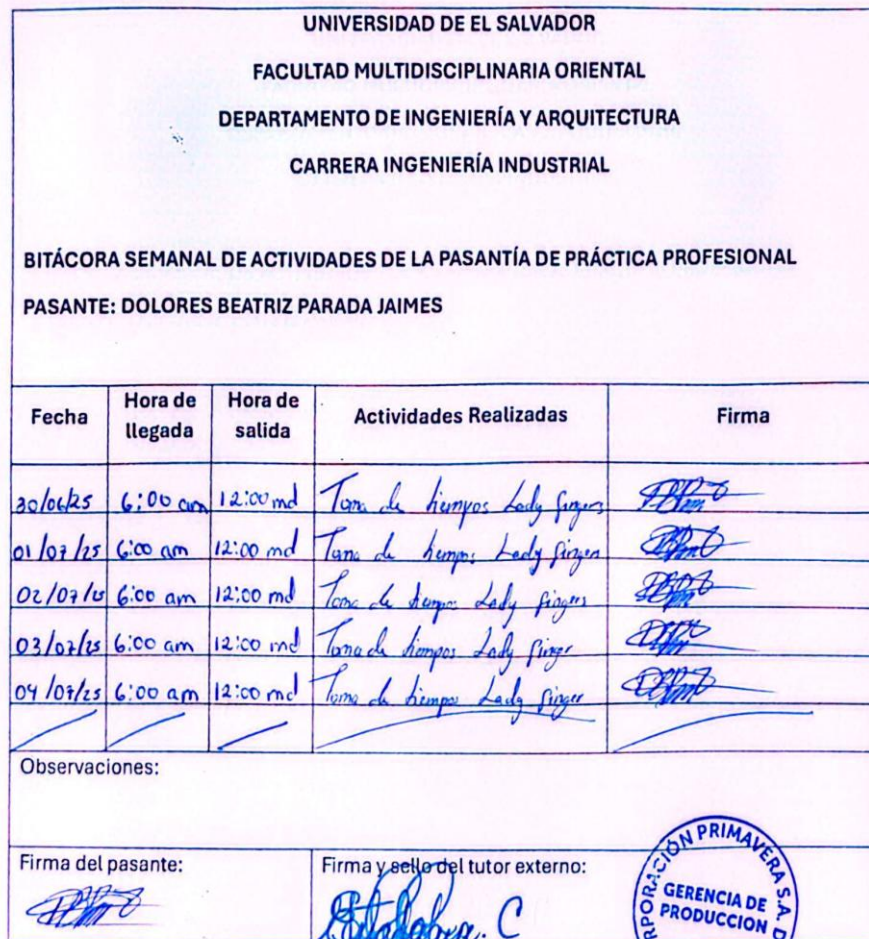 UNIVERSIDAD DE EL SALVADOR
FACULTAD MULTIDISCIPLINARIA ORIENTAL
DEPARTAMENTO DE INGENIERÍA Y ARQUITECTURA
CARRERA INGENIERÍA INDUSTRIAL
BITÁCORA SEMANAL DE ACTIVIDADES DE LA PASANTÍA DE PRÁCTICA PROFESIONAL
PASANTE: DOLORES BEATRIZ PARADA JAIMES
Fecha Hora de llegada Hora de salida Actividades Realizadas Firma
30/06/25 6:00 am 12:00 md Toma de tiempos Lady fingers
01/07/25 6:00 am 12:00 md Toma de tiempos Lady finger
02/07/25 6:00 am 12:00 md Toma de tiempos Lady fingers
03/07/25 6:00 am 12:00 md Toma de tiempos Lady finger
04/07/25 6:00 am 12:00 md Toma de tiempos Lady finger
Observaciones:
Firma del pasante: Firma y sello del tutor externo:
PRIMAVERA S.A. D
GERENCIA DE
PRODUCCION